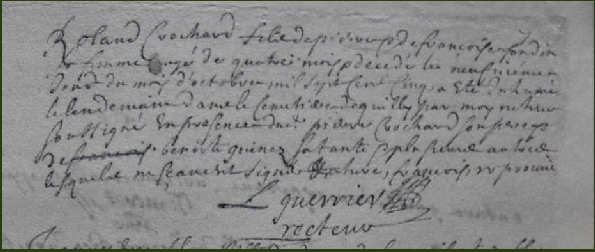 Roland Crochard fils de pierre & de francoise jordin
sa femme agé de quatre mois decedé le neufvieme
jour du mois d'octobre mil sept cent cinq a eté inhumé
le lendemain dans le cemitiere de quilly par moy recteur
soussigné en presence dudit pierre Crochard son pere &
de benoiste quinez sa tante & plusieurs autres
lesquels ne scavent signer francois
L guerrier
recteur